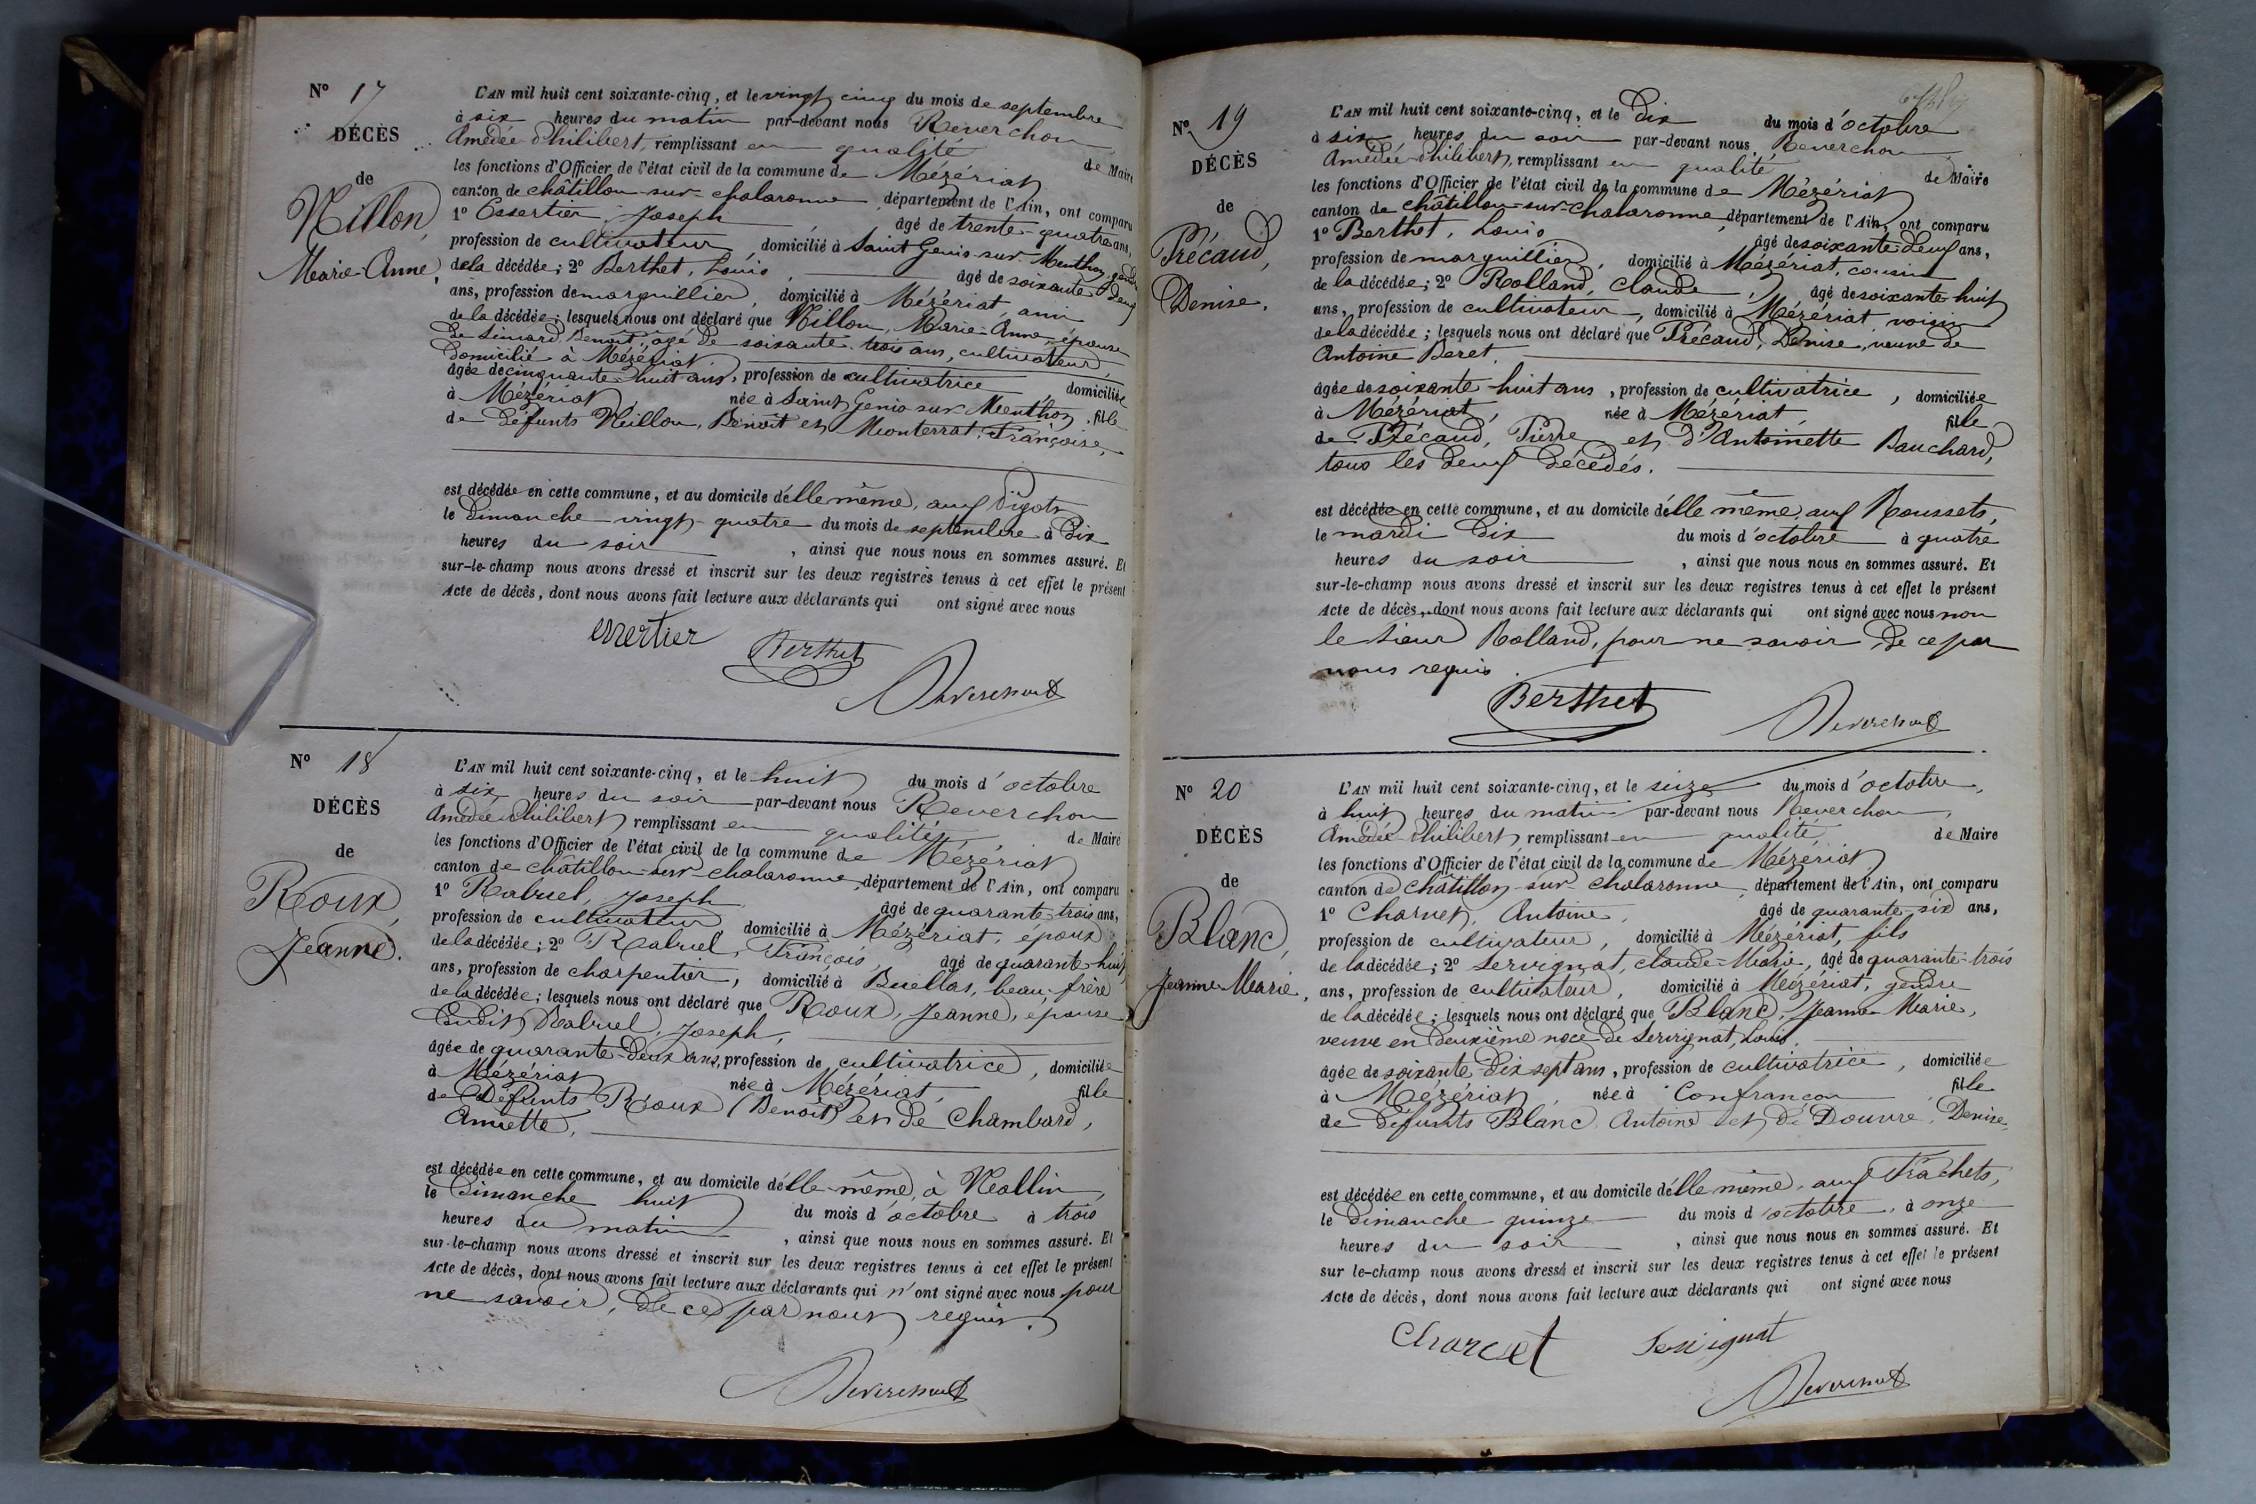 N° 17
DÉCÈS
de
Millon,
Marie-Anne,
L'AN mil huit cent soixante-cinq, et le vingt cinq du mois de septembre
à six heures du matin par-devant nous Reverchon
Amédée-Philibert, remplissant en qualité de Maire
les fonctions d'Officier de l'état civil de la commune de Mézériat
canton de châtillon-sur-chalaronne, département de l'Ain, ont comparu
1° Essertier, Joseph, âgé de trente-quatre ans,
profession de cultivateur, domicilié à Saint Genis-sur-Menthon, gendre
de la décédée; 2° Berthet, Louis, âgé de soixante deux
ans, profession de marguillier, domicilié à Mézériat, ami
de la décédée; lesquels nous ont déclaré que Millon, Marie-Anne, épouse
de Simard, Benoit, âgé de soixante-trois ans, cultivateur,
domicilié à Mézériat,
âgée de cinquante-huit ans, profession de cultivatrice domiciliée
à Mézériat, née à Saint Genis sur Menthon, fille
de défunts Millon, Benoît et Monterrat, Françoise,
est décédée en cette commune, et au domicile d'elle même, aux
le dimanche vingt-quatre du mois de septembre à dix
heures du soir, ainsi que nous nous en sommes assuré. Et
sur-le-champ nous avons dressé et inscrit sur les deux registres tenus à cet effet le présent
Acte de décès, dont nous avons fait lecture aux déclarants qui ont signé avec nous
essertier Berthet
Reverchon
N° 18
DÉCÈS
de
Roux,
Jeanne.
L'AN mil huit cent soixante-cinq, et le huit du mois d'octobre
à six heures du soir par-devant nous Reverchon
Amédée-Philibert, remplissant en qualité de Maire
les fonctions d'Officier de l'état civil de la commune de Mézériat
canton de châtillon-sur-chalaronne, département de l'Ain, ont comparu
1° Rabuel, Joseph, âgé de quarante-trois ans,
profession de cultivateur domicilié à Mézériat, époux
de la décédée; 2° Rabuel, François, âgé de quarante-huit
ans, profession de charpentier, domicilié à Buellas, beau-frère
de la décédée; lesquels nous ont déclaré que Roux, Jeanne, épouse
dudit Rabuel, Joseph,
âgée de quarante-deux ans, profession de cultivatrice, domiciliée
à Mézériat née à Mézériat, fille
de défunts Roux (Benoît) et de Chambard,
Annette,
est décédée en cette commune, et au domicile d'elle-même, à
le dimanche huit du mois d'octobre à trois
heures du matin, ainsi que nous nous en sommes assuré. Et
sur-le-champ nous avons dressé et inscrit sur les deux registres tenus à cet effet le présent
Acte de décès, dont nous avons fait lecture aux déclarants qui n'ont signé avec nous pour
ne savoir, de ce par nous requis.
Reverchon
N° 19
DÉCÈS
de
Précaud,
Denise.
L'AN mil huit cent soixante-cinq, et le dix du mois d'octobre
à six heures du soir par-devant nous Reverchon
Amédée-Philibert, remplissant en qualité de Maire
les fonctions d'Officier de l'état civil de la commune de Mézériat
canton de châtillon-sur-chalaronne, département de l'Ain, ont comparu
1° Berthet, Louis, âgé de soixante-deux ans,
profession de marguillier, domicilié à Mézériat, cousin
de la décédée; 2° Rolland, Claude, âgé de soixante-huit
ans, profession de cultivateur, domicilié à Mézériat, voisin
de la décédée; lesquels nous ont déclaré que Précaud, Denise, veuve de
Antoine Beret.
âgée de soixante-huit ans, profession de cultivatrice, domiciliée
à Mézériat, née à Mézériat, fille
de Précaud, Pierre et d'Antoinette Bauchard,
tous les deux décédés.
est décédée en cette commune, et au domicile d'elle même, aux Roussets,
le mardi dix du mois d'octobre à quatre
heures du soir, ainsi que nous nous en sommes assuré. Et
sur-le-champ nous avons dressé et inscrit sur les deux registres tenus à cet effet le présent
Acte de décès, dont nous avons fait lecture aux déclarants qui ont signé avec nous non
le sieur Rolland, pour ne savoir, de ce par
nous requis.
Berthet Reverchon
N° 20
DÉCÈS
de
Blanc,
Jeanne-Marie,
L'AN mil huit cent soixante-cinq, et le seize du mois d'octobre,
à huit heures du matin par-devant nous Reverchon,
Amédée-Philibert, remplissant en qualité de Maire
les fonctions d'Officier de l'état civil de la commune de Mézériat
canton de châtillon-sur-chalaronne, département de l'Ain, ont comparu
1° Charnet, Antoine, âgé de quarante-six ans,
profession de cultivateur, domicilié à Mézériat, fils
de la décédée; 2° Servignat, Claude-Marie, âgé de quarante-trois
ans, profession de cultivateur, domicilié à Mézériat, gendre
de la décédée; lesquels nous ont déclaré que Blanc, Jeanne-Marie,
veuve en deuxième noce de Servignat, Louis,
âgée de soixante-dix sept ans, profession de cultivatrice, domiciliée
à Mézériat, née à Confrançon, fille
de défunts Blanc Antoine et de Douvre, Denise,
est décédée en cette commune, et au domicile d'elle même, aux Trachets,
le dimanche quinze du mois d'octobre, à onze
heures du soir, ainsi que nous nous en sommes assuré. Et
sur le-champ nous avons dressé et inscrit sur les deux registres tenus à cet effet le présent
Acte de décès, dont nous avons fait lecture aux déclarants qui ont signé avec nous
Charnet Servignat
Reverchon